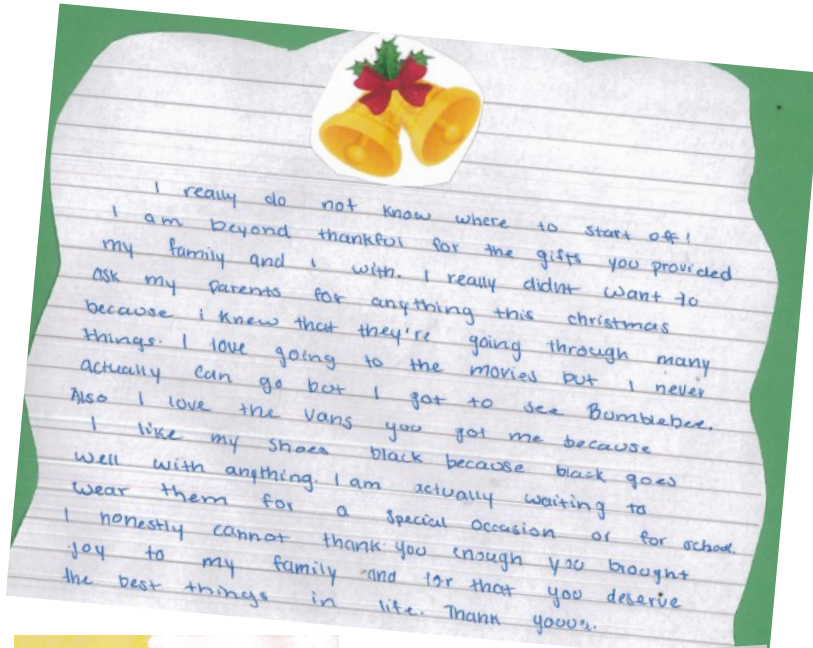 I really do not know where to start off!
I am beyond thankful for the gifts you provided
my family and i with. I really didnt want to
ask my parents for anything this christmas
because i knew that they're going through many
things. I love going to the movies but I never
actually can go but I got to see Bumblebee.
Also I love the vans you got me because
I like my shoes black because black goes
well with anything. I am actually waiting to
wear them for a special occasion or for school.
I honestly cannot thank you enough you brought
joy to my family and for that you deserve
the best things in life. Thank yooou.